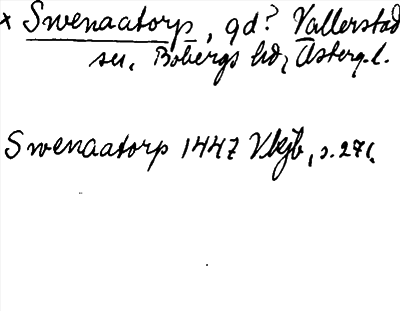 x Swenaatorp, gd? Vallerstad
sn, Bobergs hd, Österg.l.
Swenaatorp 1447 Vkjb, s. 271.